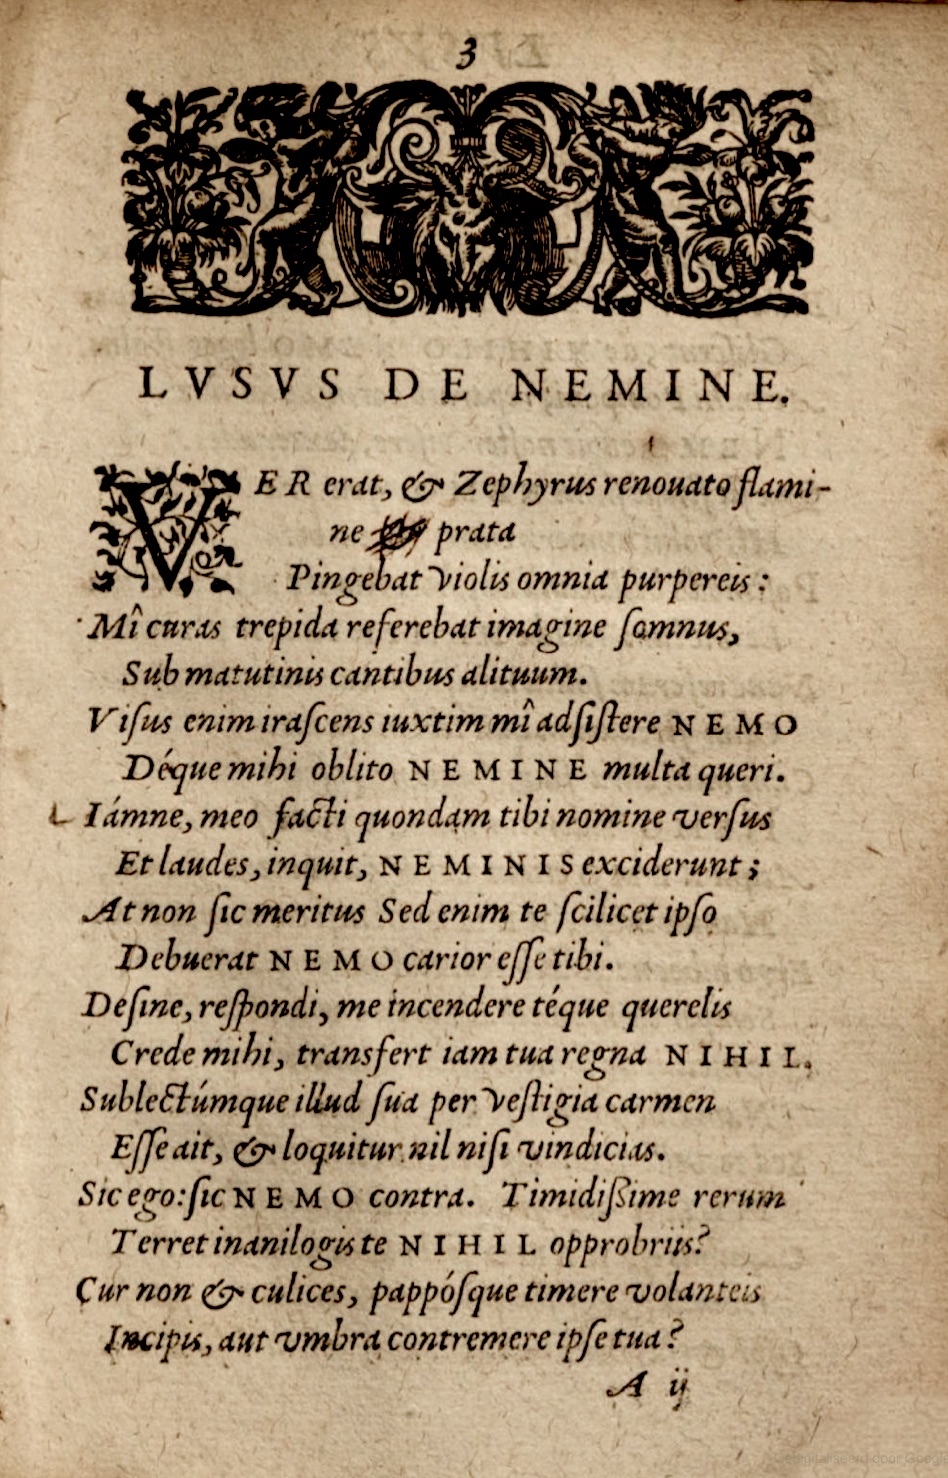 3
LVSVS DE NEMINE.
VER erat, & Zephyrus renouato flami-
ne prata
Pingebat violis omnia purpereis:
Mî curas trepida referebat imagine somnus,
Sub matutinis cantibus alituum.
Visus enim irascens iuxtim mî adsistere NEMO
Déque mihi oblito NEMINE multa queri.
Iámne, meo facti quondam tibi nomine versus
Et laudes, inquit, NEMINIS exciderunt;
At non sic meritus Sed enim te scilicet ipso
Debuerat NEMO carior esse tibi.
Desine, respondi, me incendere téque querelis
Crede mihi, transfert iam tua regna NIHIL.
Sublectúmque illud sua per vestigia carmen
Esse ait, & loquitur nil nisi vindicias.
Sic ego: sic NEMO contra. Timidißime rerum
Terret inanilogis te NIHIL opprobriis?
Cur non & culices, pappósque timere volanteis
Incipis, aut vmbra contremere ipse tua?
A ij